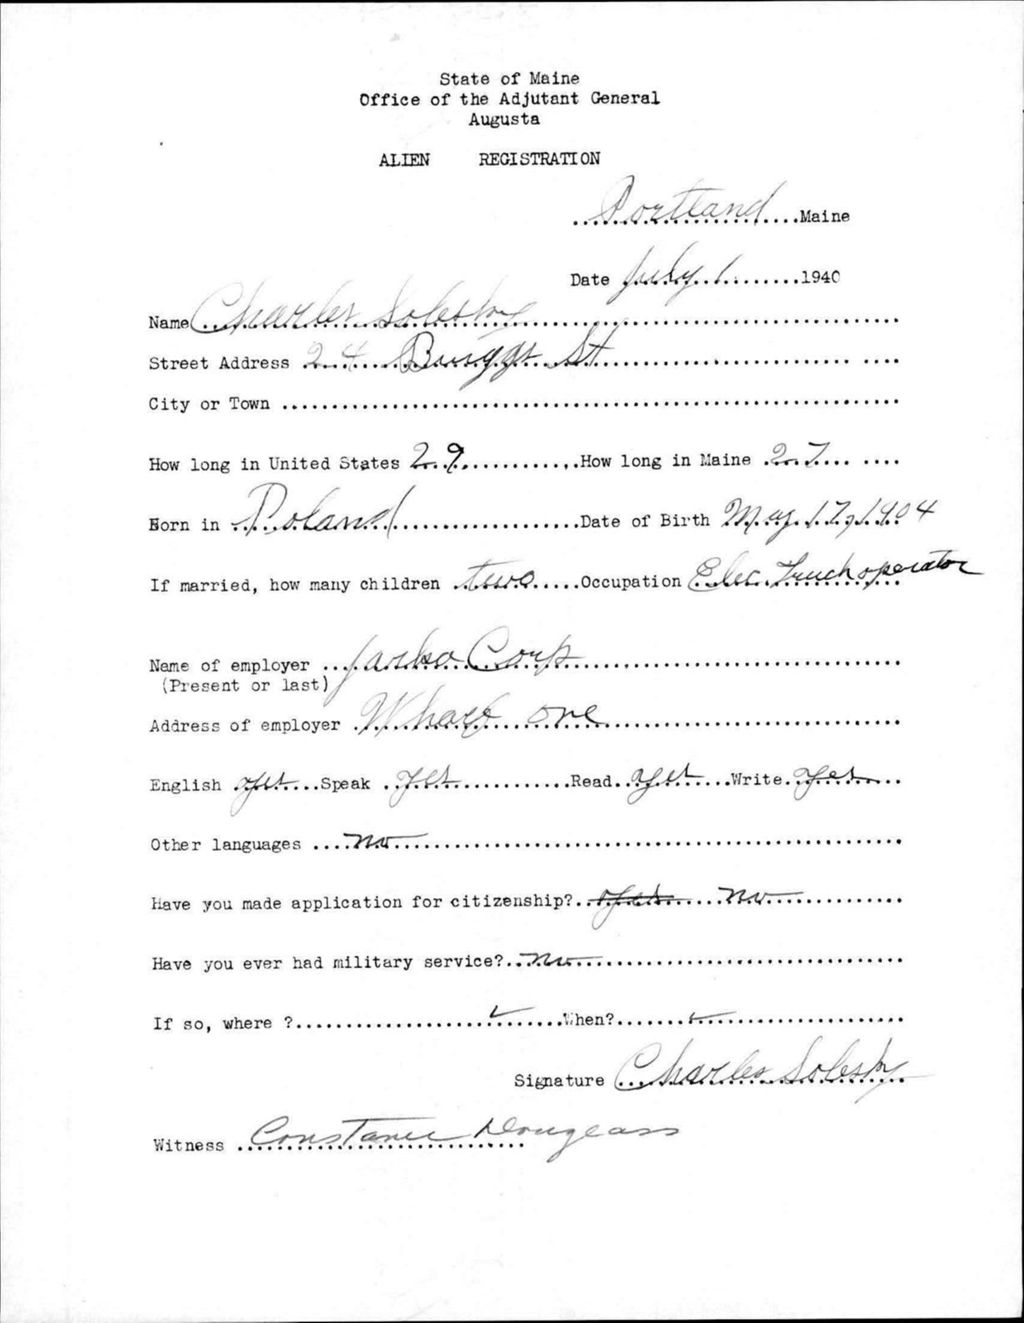 State of Maine
Office of the Adjutant General
Augusta
ALIEN REGISTRATION
Portland Maine
Date July 1 1940
Name Charles Solesky
Street Address 24 Briggs St
City or Town
How long in United States 29 How long in Maine 27
Born in Poland Date of Birth May 17, 1904
If married, how many children two Occupation Elec Truck operator
Name of employer Jarka Corp
(Present or last)
Address of employer Wharf one
English yes Speak yes Read yes Write yes
Other languages no
Have you made application for citizenship? yes no
Have you ever had military service? no
If so, where ? When?
Signature Charles Solesky
Witness Constance Douglass